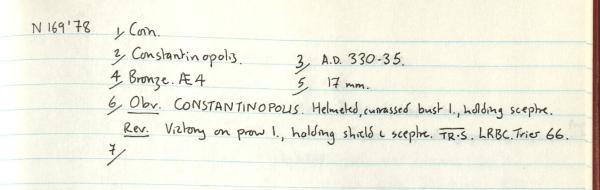 N 169'78 1, Coin.
2, Constantinopolis. 3, A.D. 330-35.
4, Bronze. Æ4 5, 17 mm.
6, Obv. CONSTANTINOPOLIS. Helmeted, cuirassed bust l., holding sceptre.
Rev. Victory on prow l., holding shield & sceptre. TR·S. LRBC.Trier 66.
7,